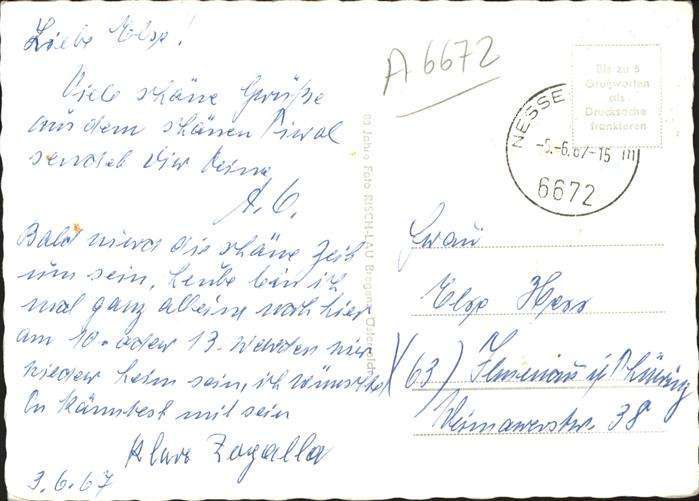 Liebe Else!
Viele schöne Grüße
aus dem schönen Tirol
sendet Dir Deine
A. O.
Bald wird die schöne Zeit
um sein, heute bin ich
mal ganz allein noch hier
am 10. oder 13. werden wir
wieder heim sein, ich wünschte
Du könntest mit sein
Klara Zogalla
3.6.67
A 6672
Bis zu 5
Grußworten
als
Drucksache
frankieren
NESSE
-5.-6.67-15
6672
60 Jahre Foto RISCH-LAU Bregenz Österreich
Frau
Else Hess
(63) Ilmenau i/ Thüring
Weimarerstr. 38